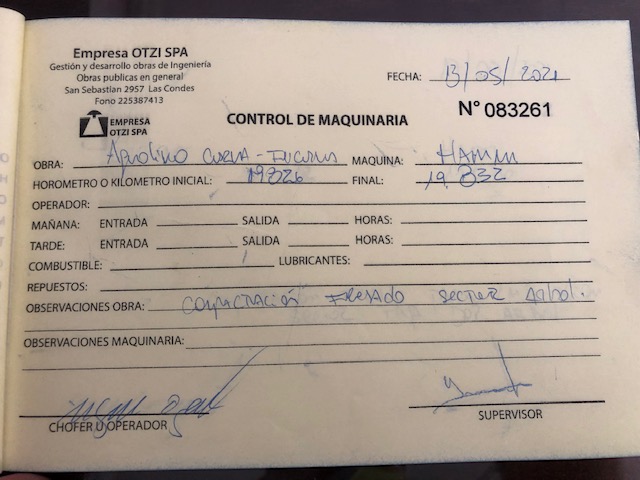 Empresa OTZI SPA
Gestión y desarrollo obras de Ingeniería
Obras publicas en general
San Sebastían 2957 Las Condes
Fono 225387413
EMPRESA
OTZI SPA
CONTROL DE MAQUINARIA
FECHA: 13/05/2021
N° 083261
OBRA: MAQUINA: HAMM
HOROMETRO O KILOMETRO INICIAL: FINAL: 19832
OPERADOR:
MAÑANA: ENTRADA SALIDA HORAS:
TARDE: ENTRADA SALIDA HORAS:
COMBUSTIBLE: LUBRICANTES:
REPUESTOS:
OBSERVACIONES OBRA: Compactación Fresado sector
OBSERVACIONES MAQUINARIA:
CHOFER U OPERADOR
SUPERVISOR